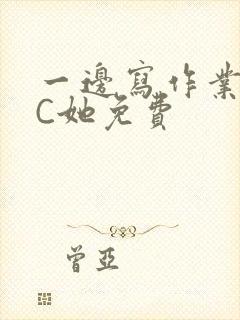 一邊寫作業
C她免費
曾亞